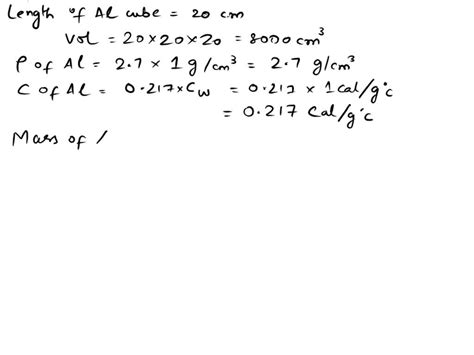 Length of Al cube = 20 cm
Vol = 20×20×20 = 8000 cm³
ρ of Al = 2.7 × 1 g/cm³ = 2.7 g/cm³
C of Al = 0.217×Cw = 0.217 × 1 Cal/g°C
= 0.217 Cal/g°C
Mass of